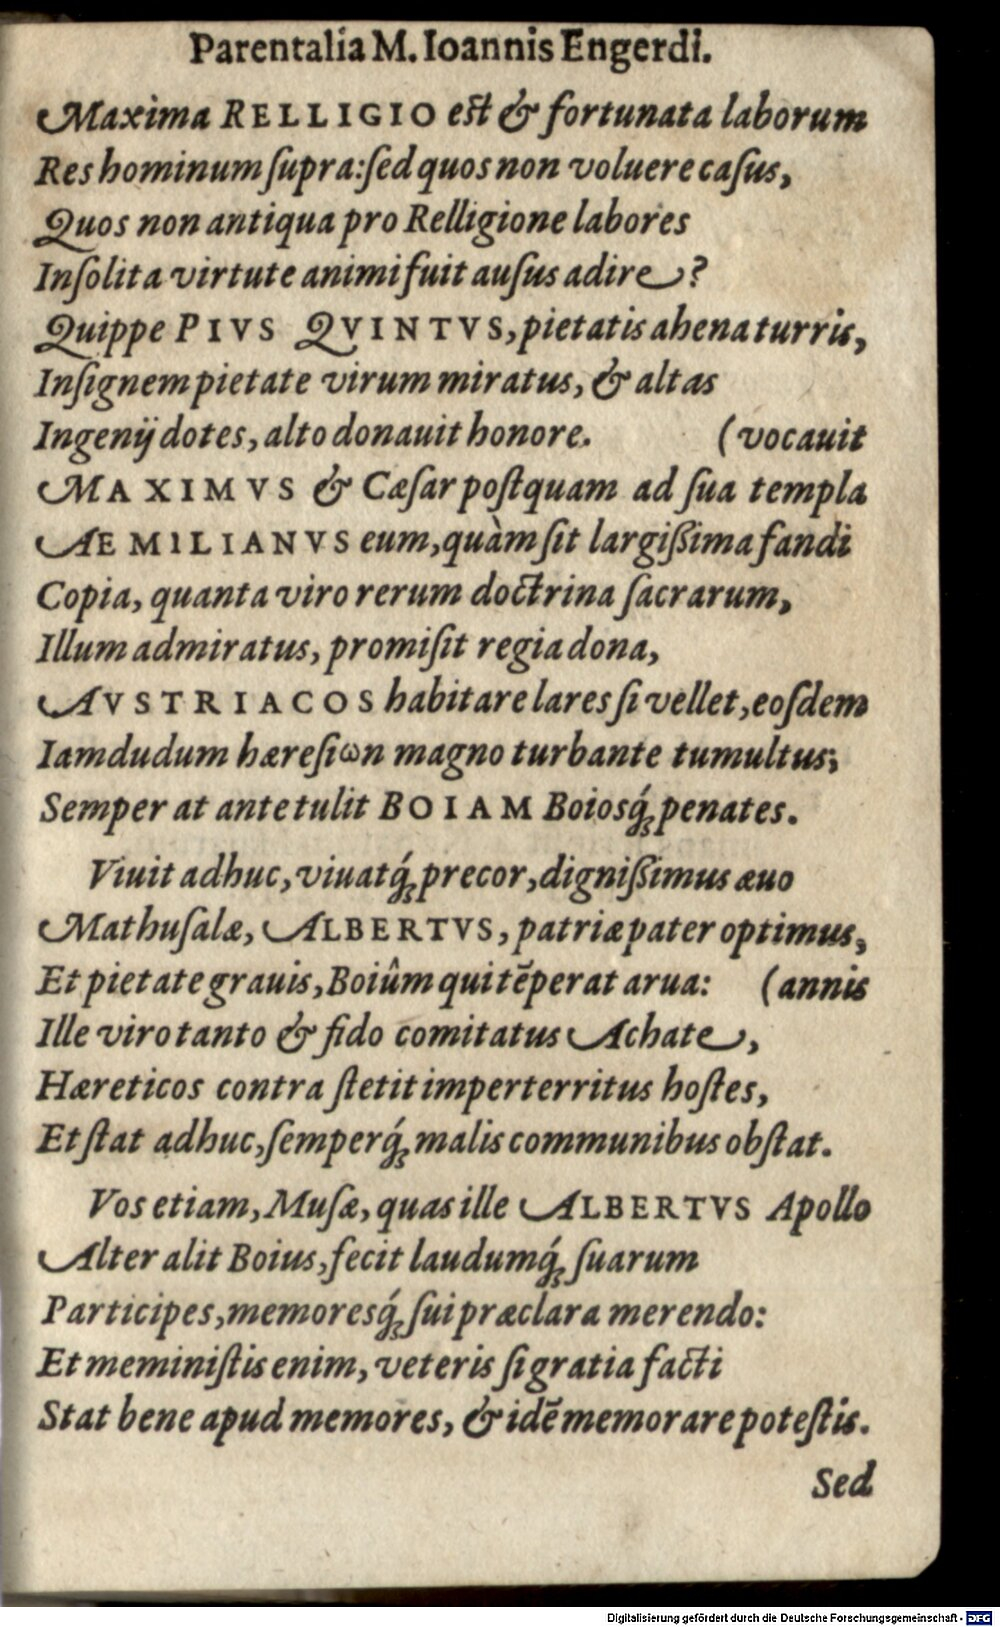 Parentalia M. Ioannis Engerdi.
Maxima RELLIGIO est & fortunata laborum
Res hominum ſupra: ſed quos non voluere caſus,
Quos non antiqua pro Relligione labores
Inſolita virtute animi fuit auſus adire?
Quippe PIVS QVINTVS, pietatis ahena turris,
Inſignem pietate virum miratus, & altas
Ingenij dotes, alto donauit honore. (vocauit
MAXIMVS & Cæſar poſtquam ad ſua templa
AEMILIANVS eum, quàm ſit largiſſima fandi
Copia, quanta viro rerum doctrina ſacrarum,
Illum admiratus, promiſit regia dona,
AVSTRIACOS habitare lares ſi vellet, eoſdem
Iamdudum hæreſiωn magno turbante tumultus;
Semper at antetulit BOIAM Boiosq́; penates.
Viuit adhuc, viuatq́; precor, digniſſimus æuo
Mathuſalæ, ALBERTVS, patriæ pater optimus,
Et pietate grauis, Boiûm qui tēperat arua: (annis
Ille viro tanto & fido comitatus Achate,
Hæreticos contra ſtetit imperterritus hoſtes,
Et ſtat adhuc, ſemperq́; malis communibus obſtat.
Vos etiam, Muſæ, quas ille ALBERTVS Apollo
Alter alit Boius, fecit laudumq́; ſuarum
Participes, memoresq́; ſui præclara merendo:
Et meminiſtis enim, veteris ſi gratia facti
Stat bene apud memores, & idē memorare poteſtis.
Sed
Digitalisierung gefördert durch die Deutsche Forschungsgemeinschaft - DFG